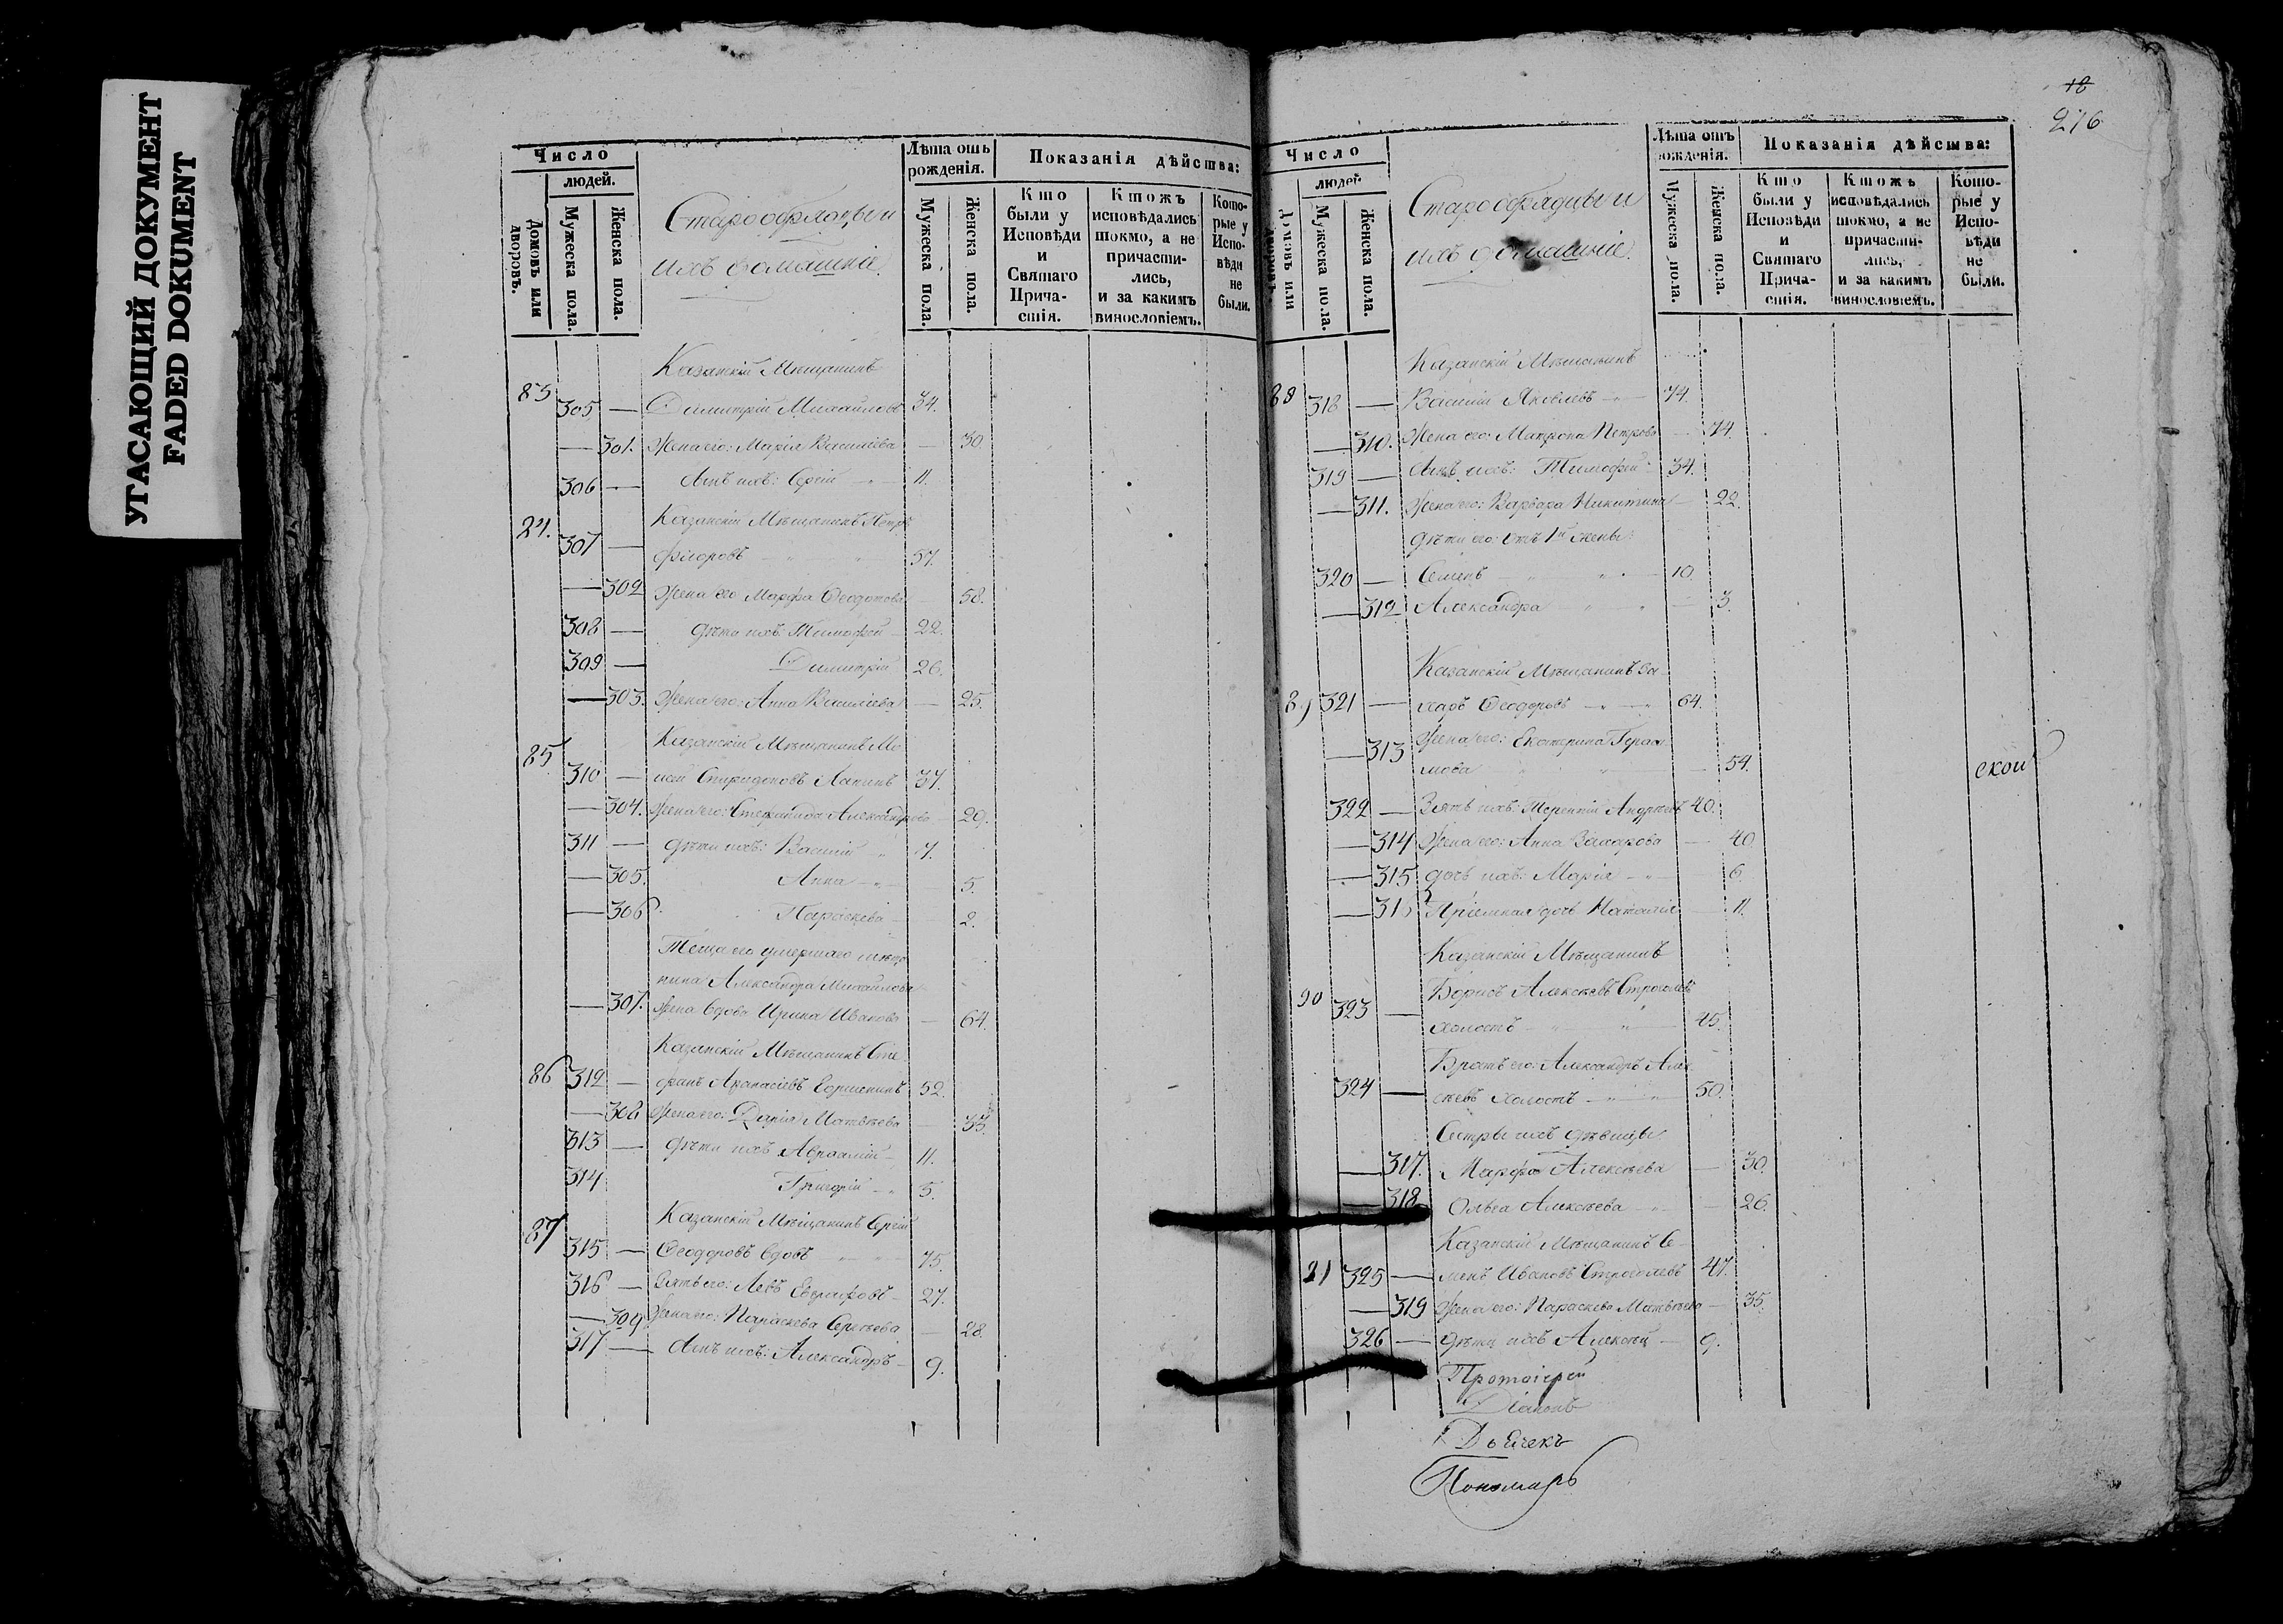 УГАСАЮЩИЙ ДОКУМЕНТ
FADED DOKUMENT
Число
людей.
Домовъ или дворовъ.
Мужеска пола.
Женска пола.
Старообрядцы и
ихъ домашніе.
Лѣта отъ рожденія.
Мужеска пола.
Женска пола.
Показанія дѣйства:
Кто были у Исповѣди и Святаго Причастія.
Ктожъ исповѣдались токмо, а не причастились, и за какимъ винословіемъ.
Которые у Исповѣди не были.
Казанскій Мѣщанинъ
83 305 — Димитрій Михайловъ 34.
— 301. Жена его: Марія Васильева — 30
306 — Сынъ ихъ: Сергій 11.
Казанскій Мѣщанинъ Петръ
84. 307 — Ѳедоровъ 57.
— 302 Жена его Марфа Ѳедотова — 58.
308 — Дѣти ихъ: Тимофей 22.
309 — Димитрій 26.
— 303. Жена его: Анна Васильева — 25.
Казанскій Мѣщанинъ Мо
85 310 — исей Спиридоновъ Лапинъ 37.
— 304. Жена его: Стефанида Александрова 29.
311 — Дѣти ихъ: Василій 7.
— 305. Анна 5.
— 306 Параскева 2.
Теща его умершаго мѣща
нина Александра Михайлова
— 307. Жена вдова Ирина Иванова — 64.
Казанскій Мѣщанинъ Сте
86 312 — фанъ Афанасіевъ 52.
— 308 Жена его: Дарія Матвѣева 33.
313 — Дѣти ихъ Авраамій 11.
314 Григорій 5.
Казанскій Мѣщанинъ Сергій
87 315 — Ѳеодоровъ вдовъ 75.
316 — Зять его: Левъ Евграфовъ 27.
— 309 Жена его: Параскева Сергѣева — 28.
317 — Сынъ ихъ: Александръ 9.
18
216
Число
людей
Домовъ или дворовъ.
Мужеска пола.
Женска пола.
Старообрядцы и
ихъ домашніе.
Лѣта отъ рожденія.
Мужеска пола.
Женска пола.
Показанія дѣйства:
Кто были у Исповѣди и Святаго Причастія.
Ктожъ исповѣдались токмо, а не причастились, и за какимъ винословіемъ.
Которые у Исповѣди не были.
Казанскій Мѣщанинъ
88 318 — Василій Яковлевъ 74.
— 310. Жена его: Матрона Петрова — 74.
319 — Сынъ ихъ: Тимофей 34.
— 311. Жена его: Варвара Никитина — 22.
Дѣти его: отъ 1й жены:
320 — Семенъ 10.
— 312. Александра 3.
Казанскій Мѣщанинъ За
89 321 — харъ Ѳеодоровъ 64.
— 313 Жена его: Екатерина Гераси
мова — 54.
ской
322 — Зять ихъ: Терентій Андреевъ 40.
— 314 Жена его: Анна Захарова — 40
— 315 дочь ихъ: Марія 6.
— 316 Пріемная дочь Наталія 11.
Казанскій Мѣщанинъ
90 323 — Борисъ Алексѣевъ Строгалевъ
холостъ 45.
Братъ его: Александръ Алек
324 — сѣевъ холостъ 50.
Сестры ихъ дѣвицы
— 317. Марфа Алексѣева — 30.
— 318 Ольга Алексѣева — 26.
Казанскій Мѣщанинъ Се
91 325 — менъ Ивановъ Строгалевъ 47.
— 319 Жена его: Параскева Матвѣева — 35.
326 — Дѣти ихъ Алексѣй 9.
Протоіерей
Діаконъ
Дьячекъ
Пономарь